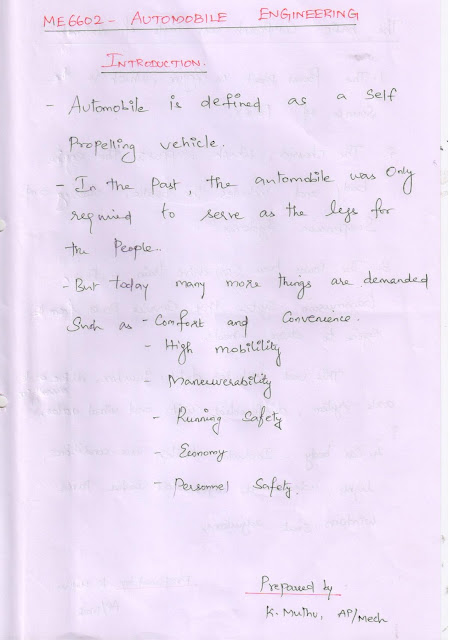 ME6602 - AUTOMOBILE ENGINEERING
INTRODUCTION.
- Automobile is defined as a self
Propelling vehicle.
- In the Past, the automobile was Only
required to serve as the legs for
the People..
- But today many more things are demanded
Such as - Comfort and Convenience.
- High mobilility
- Maneuverability
- Running Safety
- Economy
- Personnel Safety.
Prepared by
K. Muthu, AP/Mech